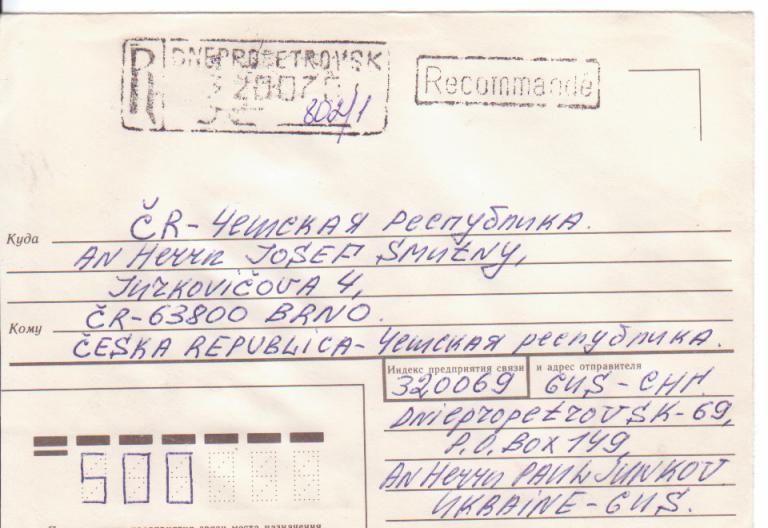 R DNEPROPETROVSK
320070
802/1
Recommandé
Куда ČR - Чешская республика.
AN Herrn JOSEF SMUTNY,
Jurkovičova 4,
Кому ČR-63800 BRNO.
ČESKA REPUBLICA - Чешская республика.
Индекс предприятия связи и адрес отправителя
320069 GUS - СНГ
Dniepropetrovsk-69,
P.O. Box 149,
AN Herrn PAUL JUNKOV
UKRAINE - GUS.
500
предприятия связи места назначения